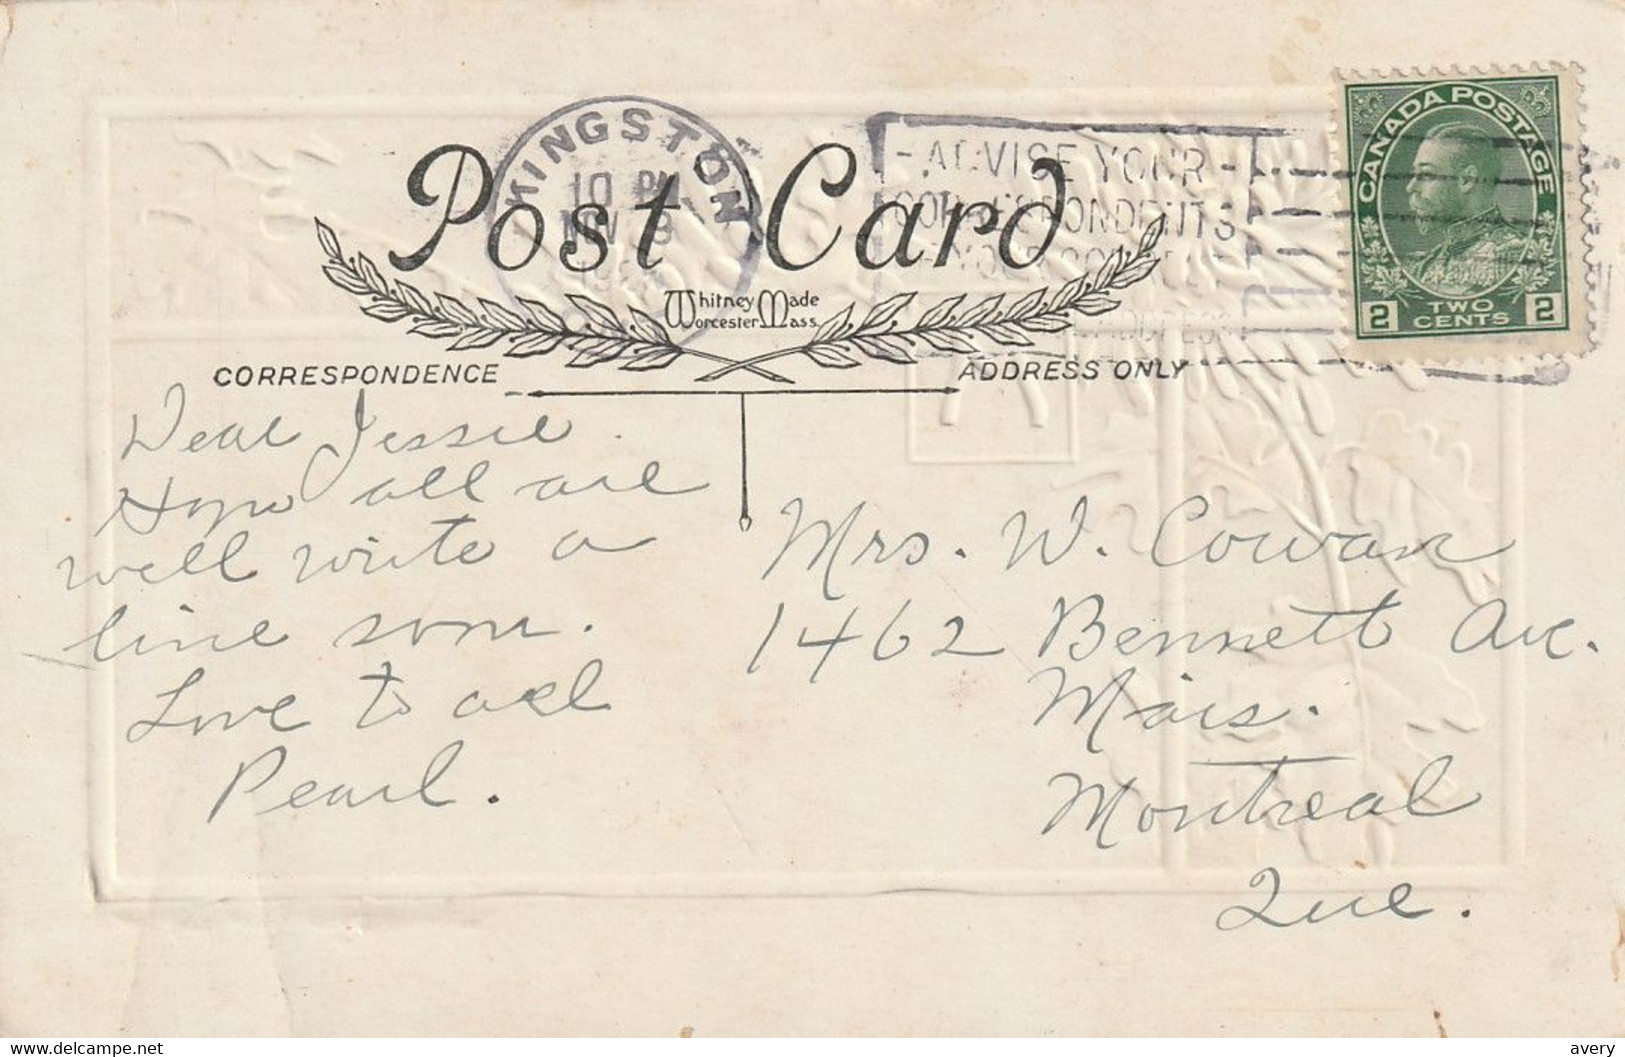 KINGSTON
10 PM
9
- ADVISE YOUR -
CORRESPONDENTS
OF YOUR CORRECT
ADDRESS
CANADA POSTAGE
2 TWO CENTS 2
Post Card
Whitney Made
Worcester Mass.
CORRESPONDENCE
ADDRESS ONLY
Dear Jessie.
Hope all are
well write a
line soon.
Love to all
Pearl.
Mrs. W. Cowan
1462 Bennett Ave.
Mais.
Montreal
Que.
www.delcampe.net
avery